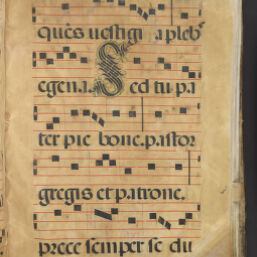 ques uestigi a pleb
egena. Sed tu pa
ter pie bone. pastor
gregis et patrone.
prece semper se du